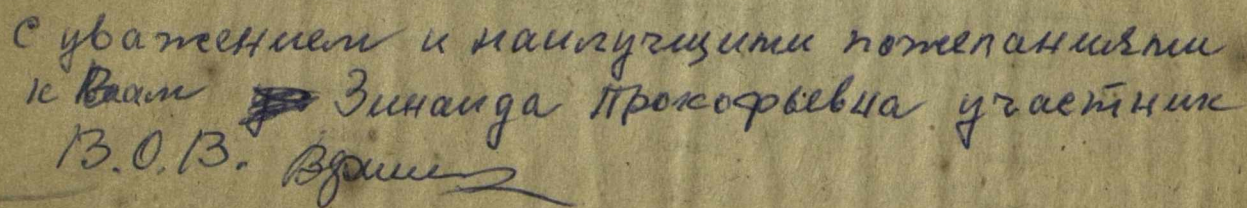 С уважением и наилучшими пожеланиями
к Вам Зинаида Прокофьевна участник
В.О.В.